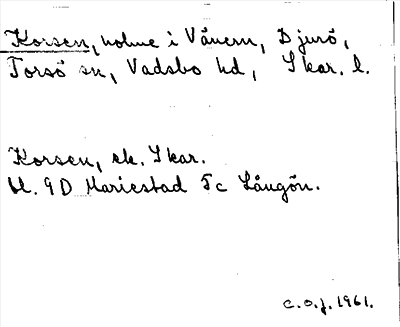 Korsen, holme i Vänern, Djurö,
Torsö sn, Vadsbo hd, Skar. l.
Korsen, ek. Skar.
bl. 9D Mariestad 5c Långön.
c.o.f. 1961.